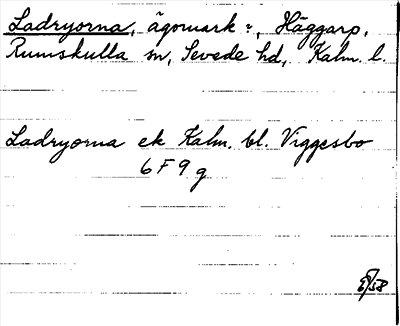 Ladryorna, ägomark ?, Häggarp,
Rumskulla sn, Sevede hd, Kalm. l.
Ladryorna ek Kalm. bl. Viggesbo
6 F 9 g
/58